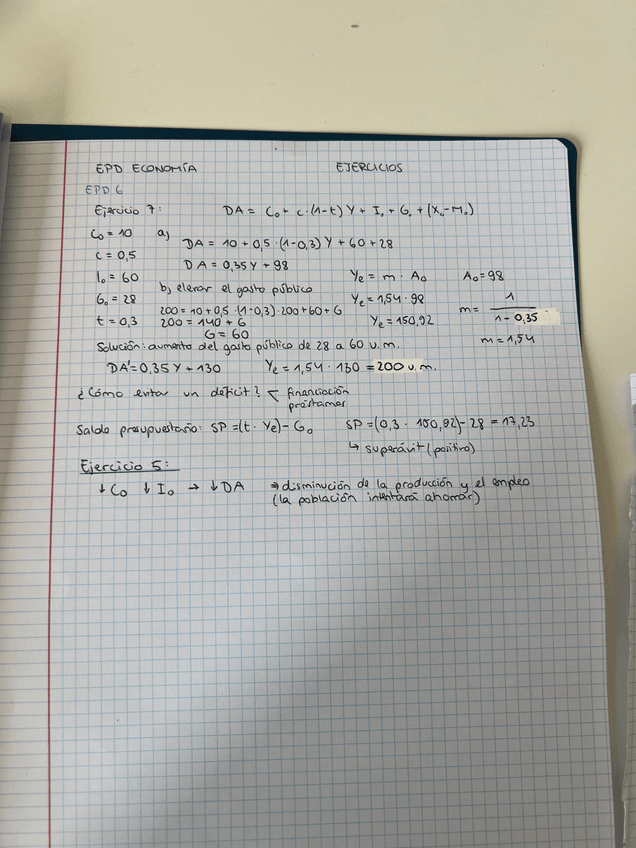 EPD ECONOMÍA EJERCICIOS
EPD 6
Ejercicio 7: DA = C₀ + c·(1-t) Y + I₀ + G₀ + (X₀-M₀)
C₀ = 10 a)
DA = 10 + 0,5·(1-0,3) Y + 60 + 28
c = 0,5
DA = 0,35 Y + 98
I₀ = 60 Ye = m · A₀ A₀ = 98
b) elevar el gasto público
G₀ = 28 200 = 10 + 0,5·(1-0,3)·200 + 60 + G Ye = 1,54 · 98 m = 1 / 1 - 0,35
t = 0,3 200 = 140 + G Ye = 150,92
G = 60 m = 1,54
Solución: aumento del gasto público de 28 a 60 u.m.
DA' = 0,35 Y + 130 Ye = 1,54 · 130 = 200 u.m.
¿Cómo evitar un déficit? < financiación
préstamos
Saldo presupuestario: SP = (t · Ye) - G₀ SP = (0,3 · 150,92) - 28 = 17,23
↳ superávit (positivo)
Ejercicio 5:
↓ C₀ ↓ I₀ → ↓ DA ⇒ disminución de la producción y el empleo
(la población intentará ahorrar)